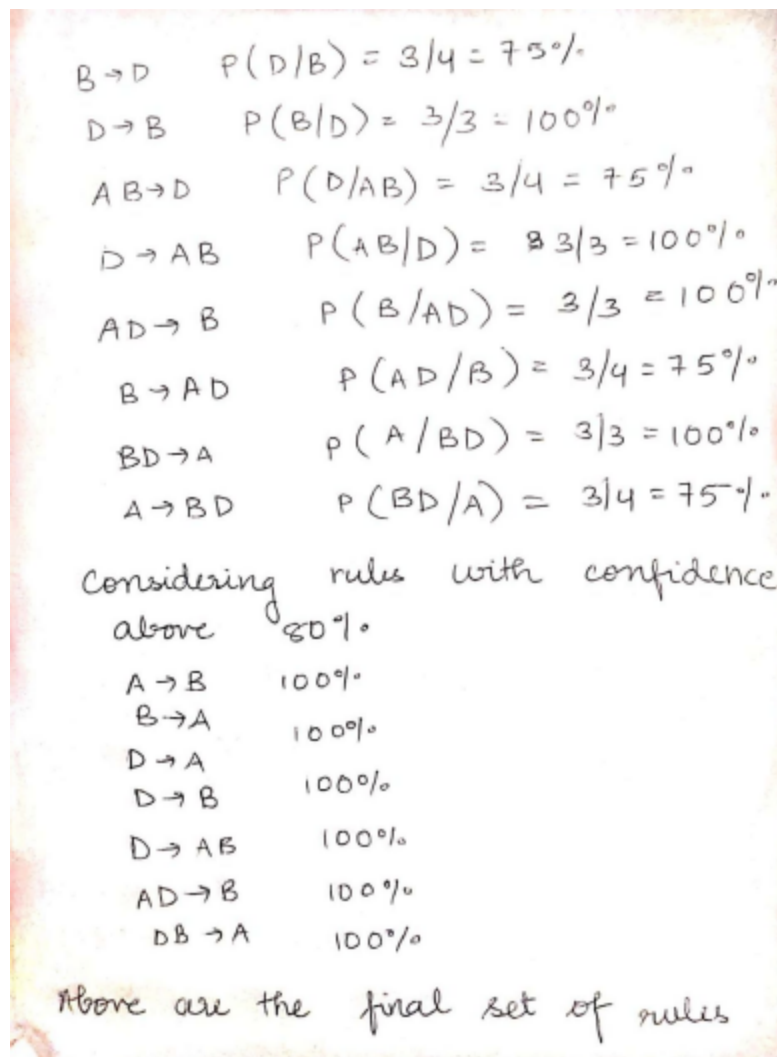 B → D P(D/B) = 3/4 = 75%
D → B P(B/D) = 3/3 = 100%
AB → D P(D/AB) = 3/4 = 75%
D → AB P(AB/D) = 3/3 = 100%
AD → B P(B/AD) = 3/3 = 100%
B → AD P(AD/B) = 3/4 = 75%
BD → A P(A/BD) = 3/3 = 100%
A → BD P(BD/A) = 3/4 = 75%
Considering rules with confidence
above 80%
A → B 100%
B → A 100%
D → A
D → B 100%
D → AB 100%
AD → B 100%
DB → A 100%
Above are the final set of rules